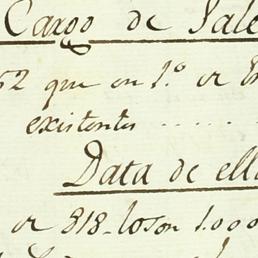 Cargo de Sale
52 que en 1.º de En
existentes .....
Data de ella
de 818_ los on 1.000